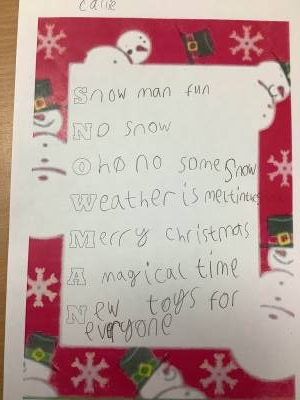 Carie
Snow man fun
No snow
Oh no no some snow
Weather is
Merry christmas
A magical time
New toys for
everyone